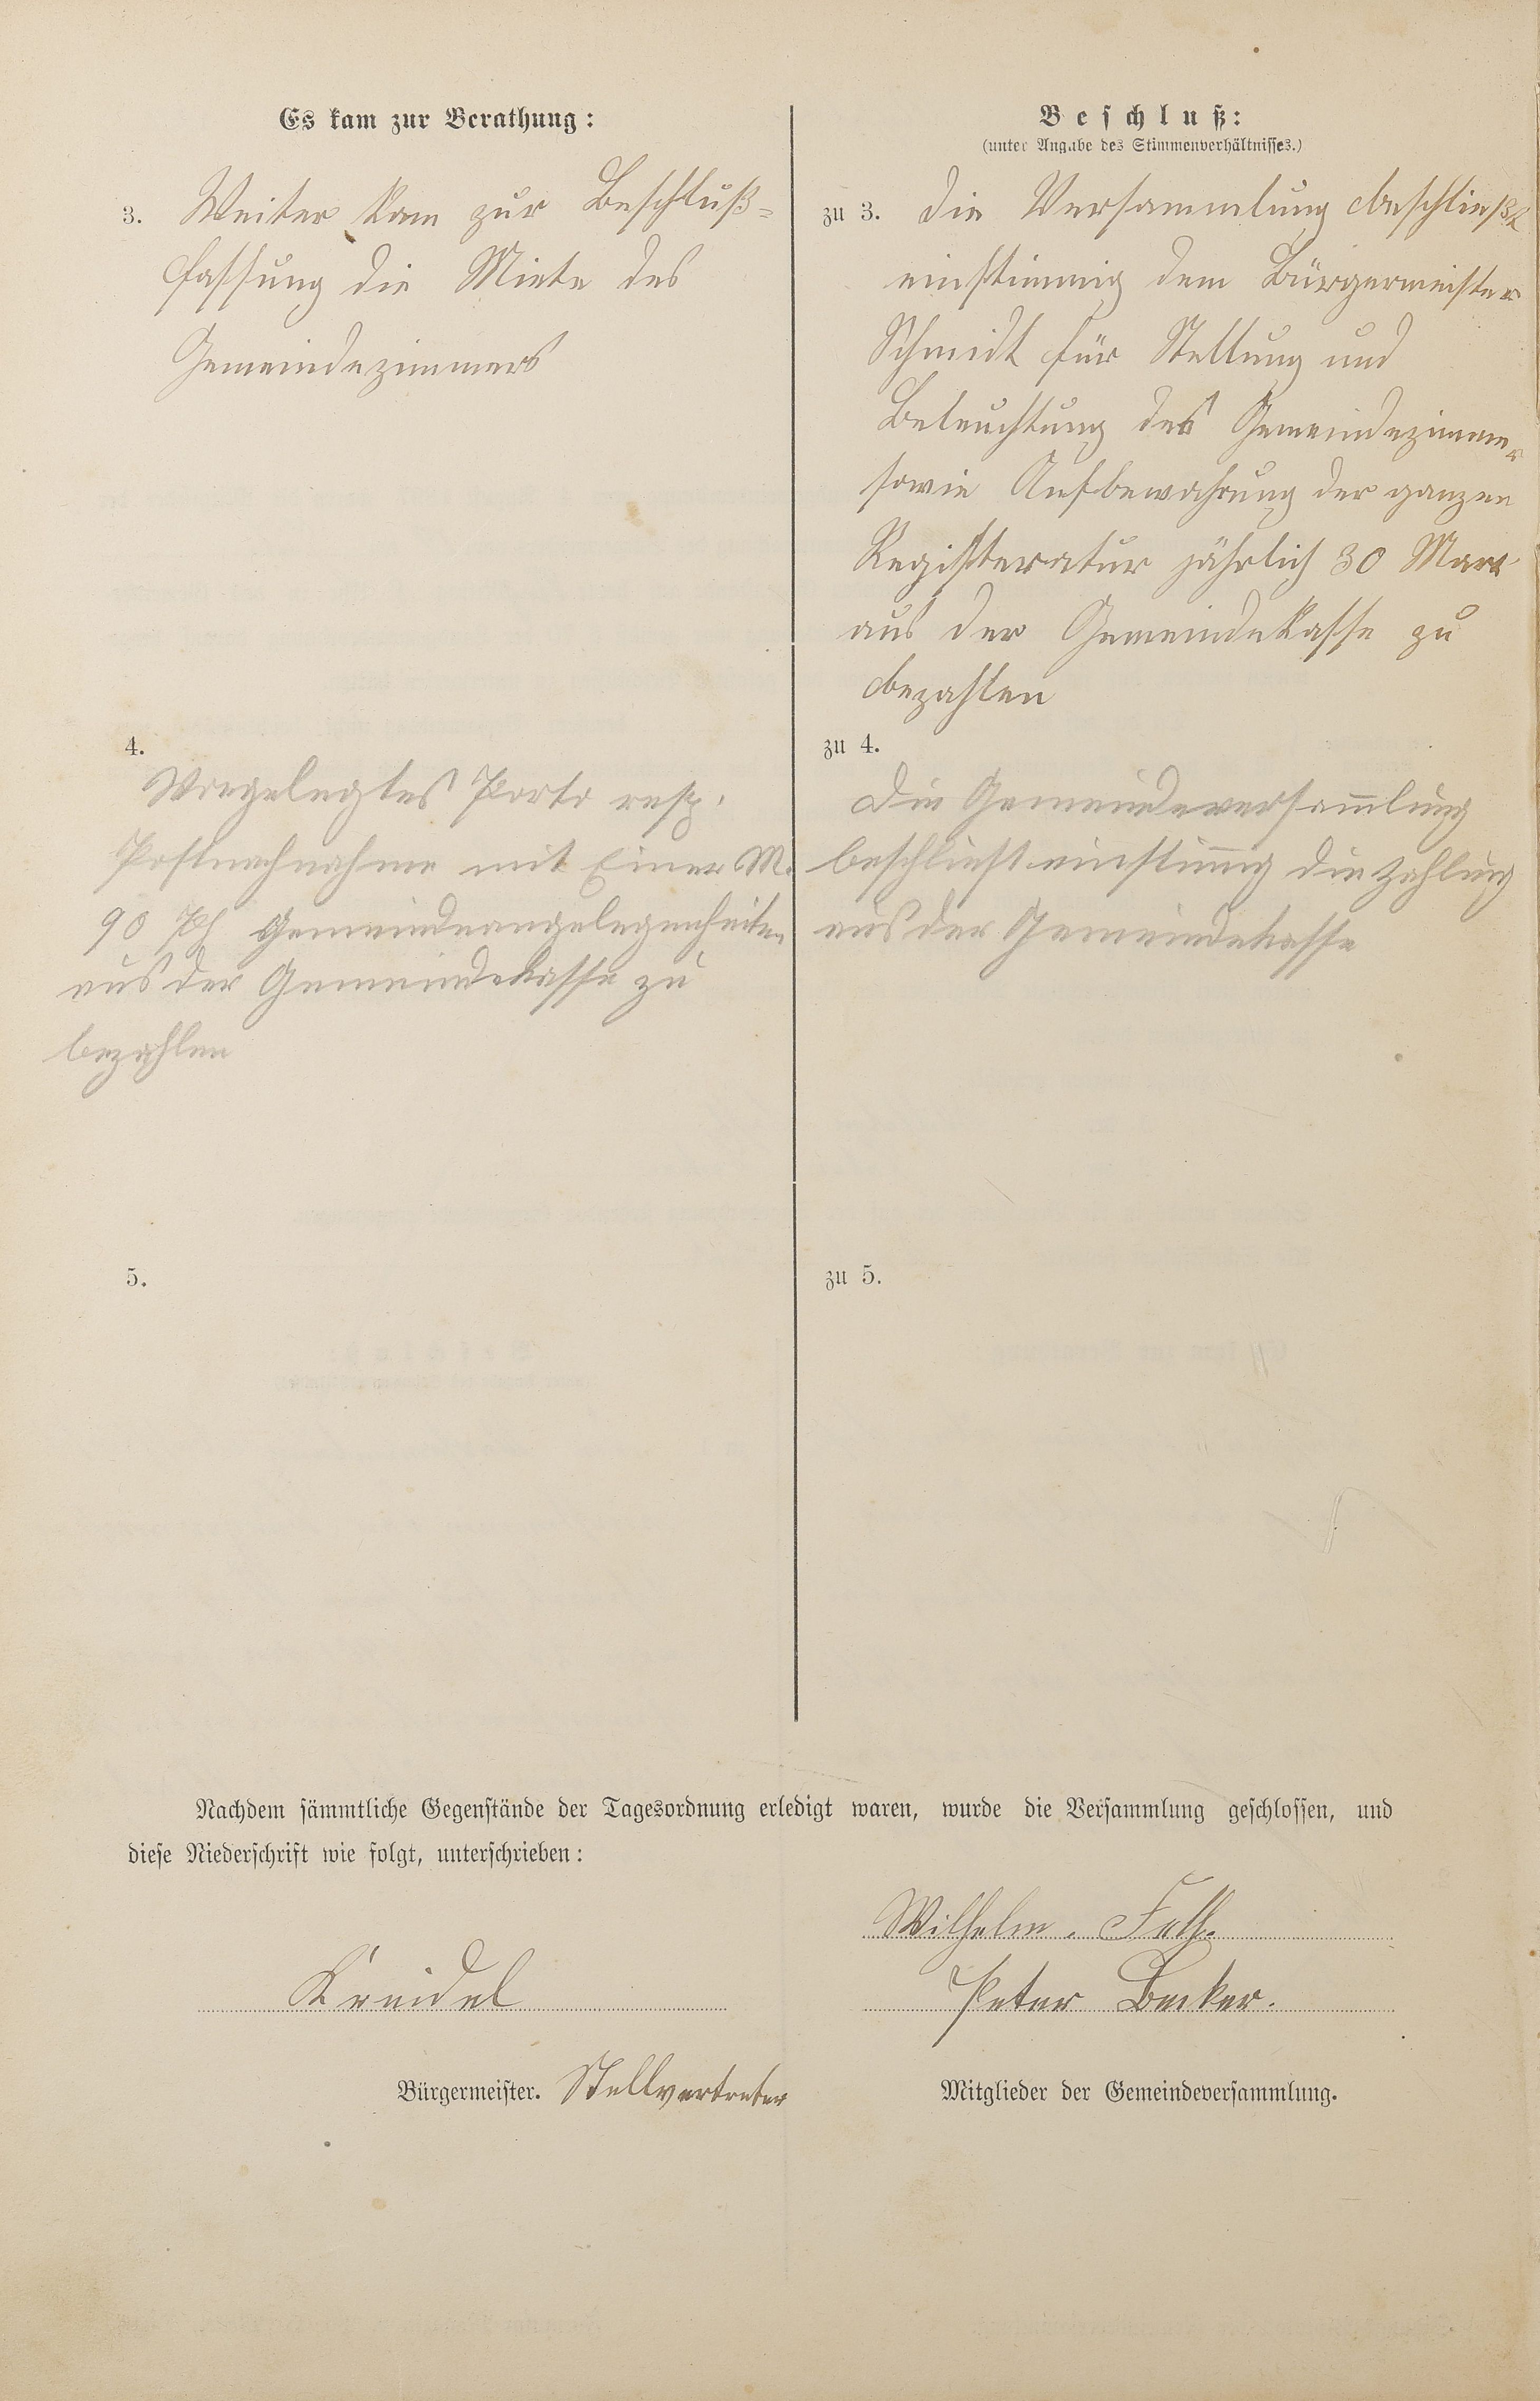 Es kam zur Berathung:
3. Weiter kam zur Beschluß=
fassung die Miete des
Gemeindezimmers
4.
Vorgelegtes Porto resp.
Postnachnahme mit Einer M.
90 Pf Gemeindeangelegenheiten
aus der Gemeindekasse zu
bezahlen
5.
Beschluß:
(unter Angabe des Stimmenverhältnisses.)
zu 3. Die Versammlung beschließt
einstimmig dem Bürgermeister
Schmidt für Stellung und
Beleuchtung des Gemeindezimmer
sowie Aufbewahrung der ganzen
Registeratur jährlich 30 Mark
aus der Gemeindekasse zu
bezahlen
zu 4.
Die Gemeindeversam̅lung
beschliest einstim̅ig die Zahlung
aus der Gemeindekasse
zu 5.
Nachdem sämmtliche Gegenstände der Tagesordnung erledigt waren, wurde die Versammlung geschlossen, und
diese Niederschrift wie folgt, unterschrieben:
Kreidel
Bürgermeister. Stellvertreter
Wilhelm.
Peter Becker.
Mitglieder der Gemeindeversammlung.